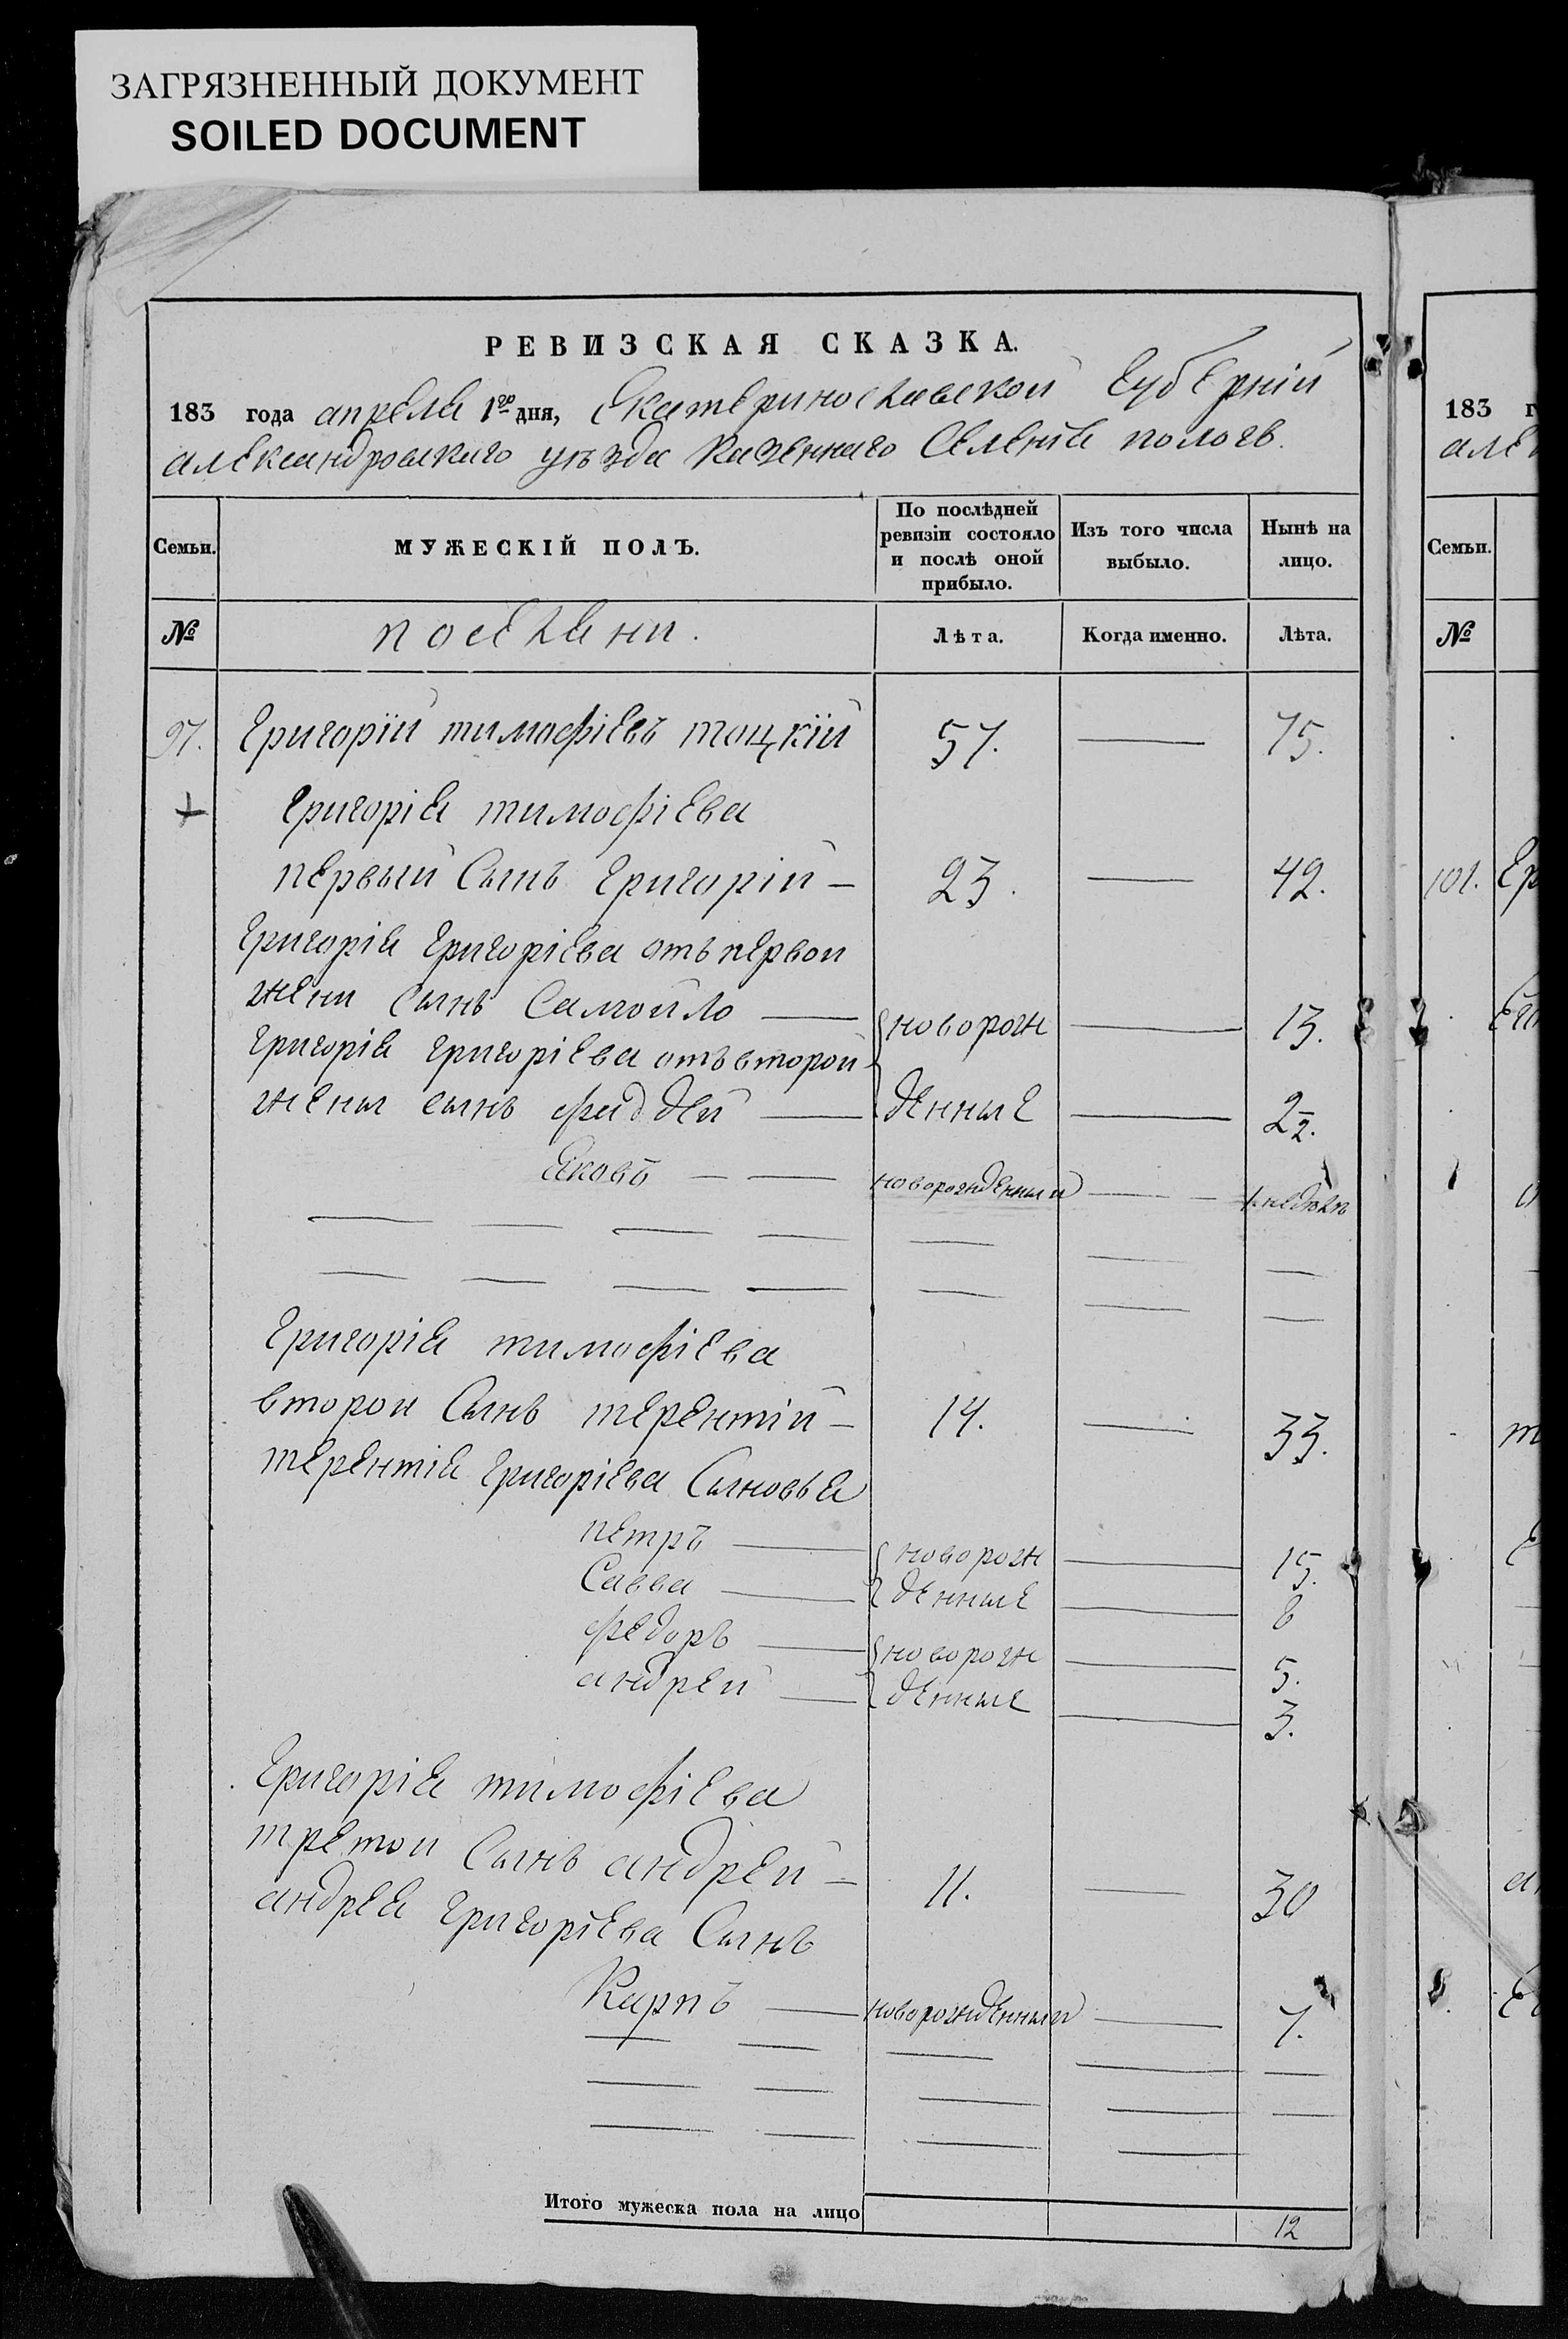 ЗАГРЯЗНЕННЫЙ ДОКУМЕНТ
SOILED DOCUMENT
РЕВИЗСКАЯ СКАЗКА.
183 года апреля 1го дня, Екатеринославской Губерній
александровскаго уѣзда казеннаго Селенія пологъ.
Семьи. МУЖЕСКІЙ ПОЛЪ. По послѣдней ревизіи состояло и послѣ оной прибыло. Изъ того числа выбыло. Нынѣ на лицо.
№ поселяни. Лѣта. Когда именно. Лѣта.
97. Григорій тимофіевъ тоцкій 57. 75.
+ Григорія тимофіева
первый Сынъ Григорій 23. 42.
Григорія Григоріева отъ первой
жени сынъ Самойло новорож 13.
Григорія григоріева отъ второй
жены сынъ фаддей денные 2½.
Яковъ новорожденный 1 недѣля
Григорія тимофіева
второй Сынъ терентій 14. 33.
терентія григоріева Сыновья
петръ новорож 15.
Савва денные 8
федоръ новорож 5.
андрей денные 3.
Григорія тимофіева
третой Сынъ андрей 11. 30
андрея григоріева Сынъ
Карпъ новорожденный 7.
Итого мужеска пола на лицо 12
183 г
але
Семьи.
№
101. Гр